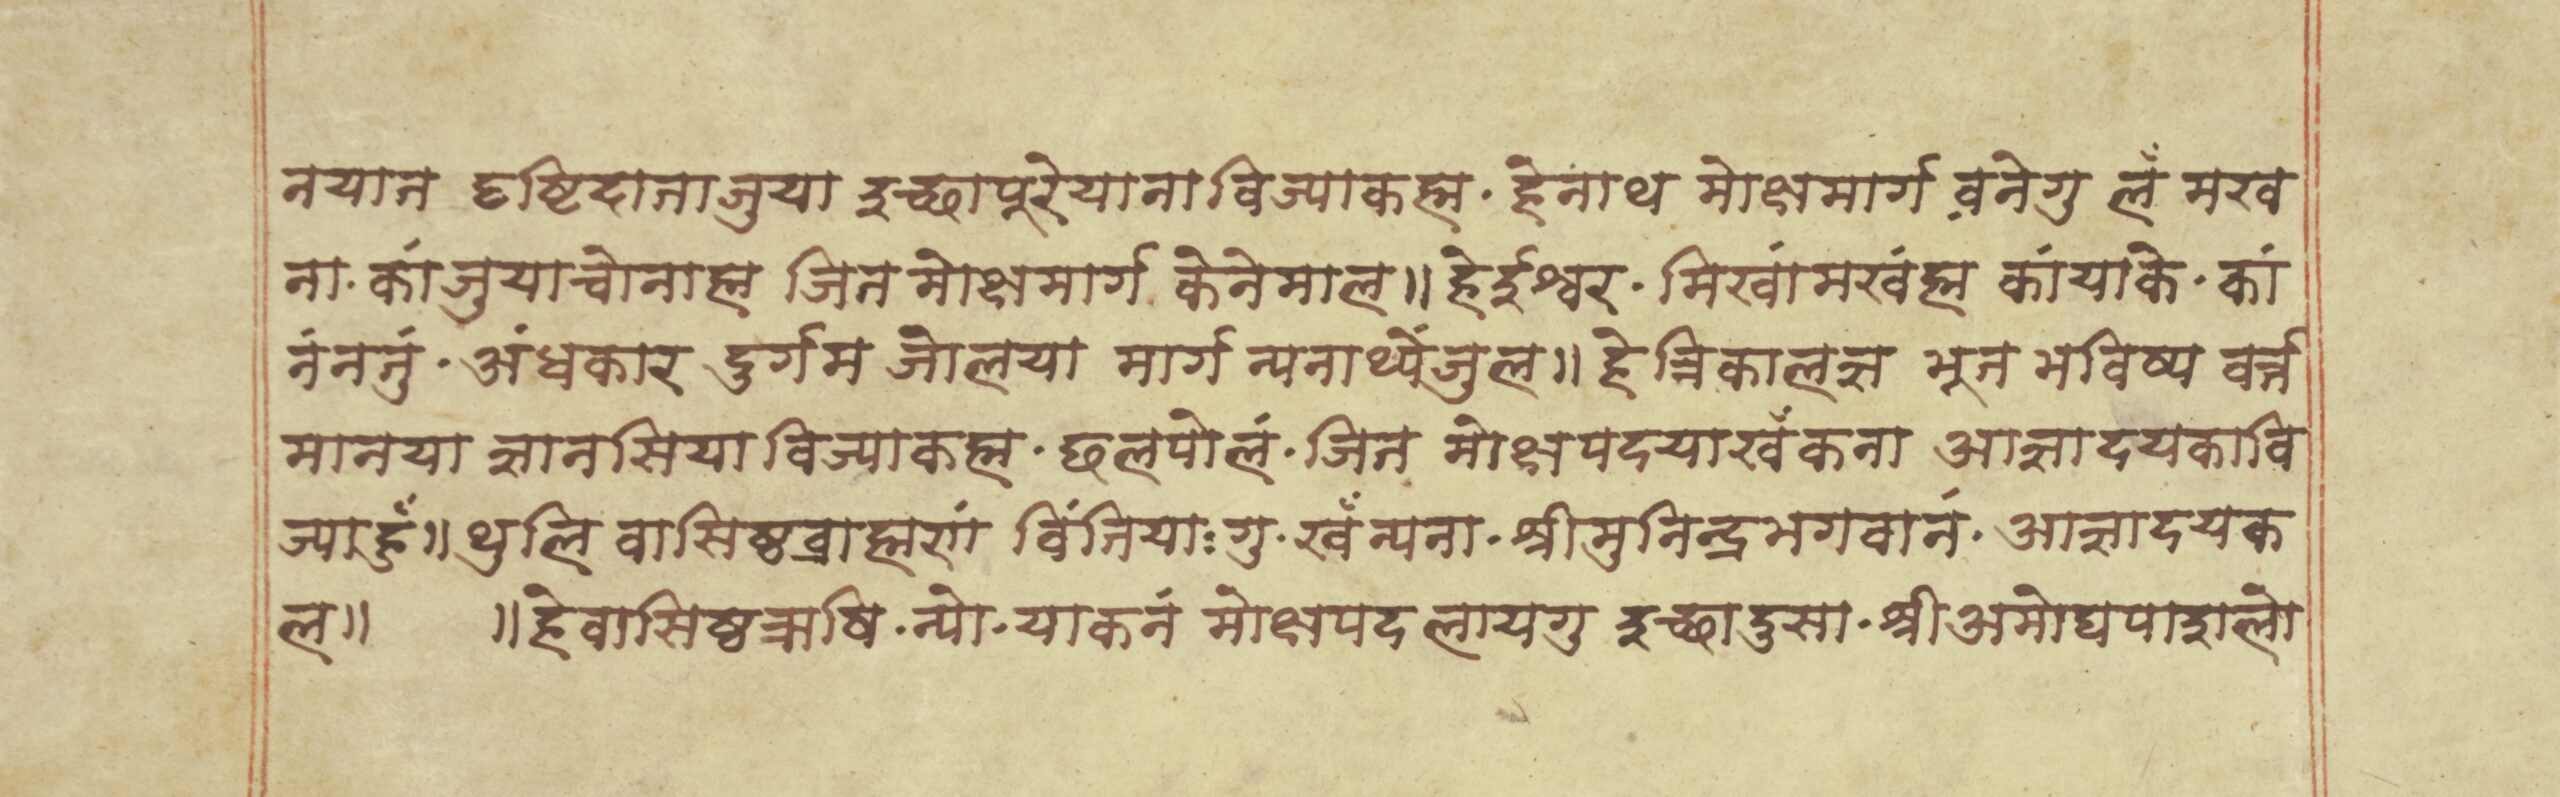 नयात दृष्टिदाताजुया इच्छापूरेयानाविज्याकह्म. हेनाथ मोक्षमार्ग वनेगु लँ मखं
ना. कांजुयाच्वोनाह्म जित मोक्षमार्ग केनेमाल॥हेईश्वर. मिखांमखंह्म कांयाके. कां
नंनतुं. अंधकार दुर्गम जोलया मार्ग न्यनार्थ्येंजुल॥हे त्रिकालज्ञ भूत भविष्य वर्त्त
मानया ज्ञानसियाविज्याकह्म. छलपोलं. जित मोक्षपदयाखँकना आज्ञादयकावि
ज्याहुँ॥थुलि वासिष्ठब्राह्मणं विंतियाःगु. खँन्यना. श्रीमुनिन्द्रभगवानं. आज्ञादयक
ल॥ ॥हेवासिष्ठऋषि. न्यो. याकनं मोक्षपदलायगु इच्छादुसा. श्रीअमोघपाशलो